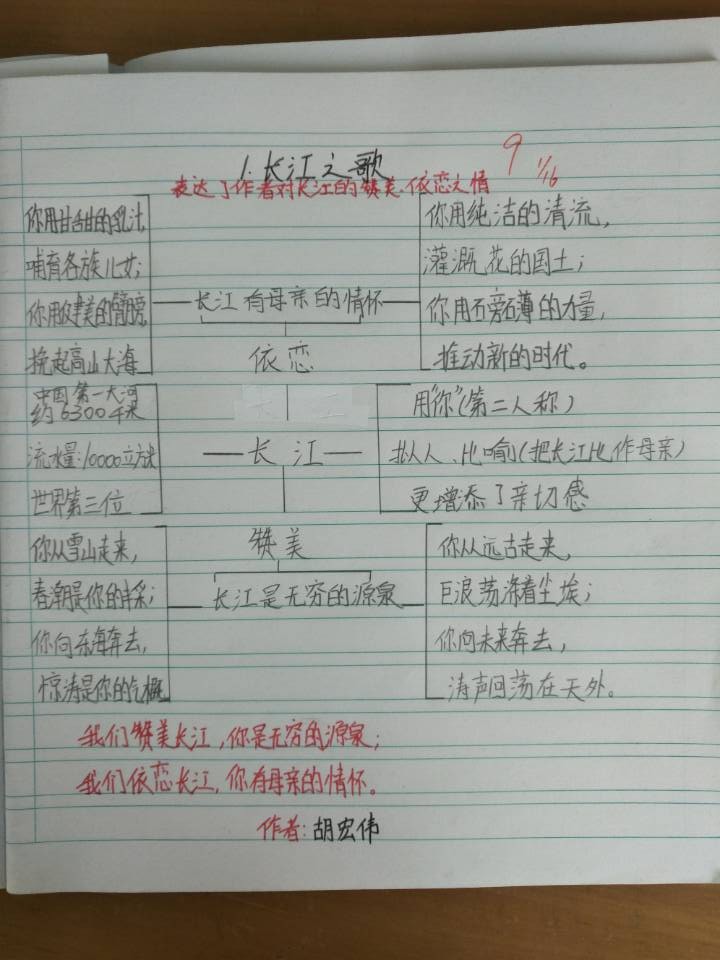 1. 长江之歌
9 1/16
表达了作者对长江的赞美、依恋之情
你用甘甜的乳汁,
哺育各族儿女;
你用健美的臂膀,
挽起高山大海
长江有母亲的情怀
依恋
你用纯洁的清流,
灌溉花的国土;
你用磅礴的力量,
推动新的时代。
中国第一大河
约6300千米
流水量:10000立方米
世界第三位
长江
用“你”(第二人称)
拟人、比喻(把长江比作母亲)
更增添了亲切感
你从雪山走来,
春潮是你的丰采;
你向东海奔去,
惊涛是你的气概
赞美
长江是无穷的源泉
你从远古走来,
巨浪荡涤着尘埃;
你向未来奔去,
涛声回荡在天外。
我们赞美长江,你是无穷的源泉;
我们依恋长江,你有母亲的情怀。
作者:胡宏伟